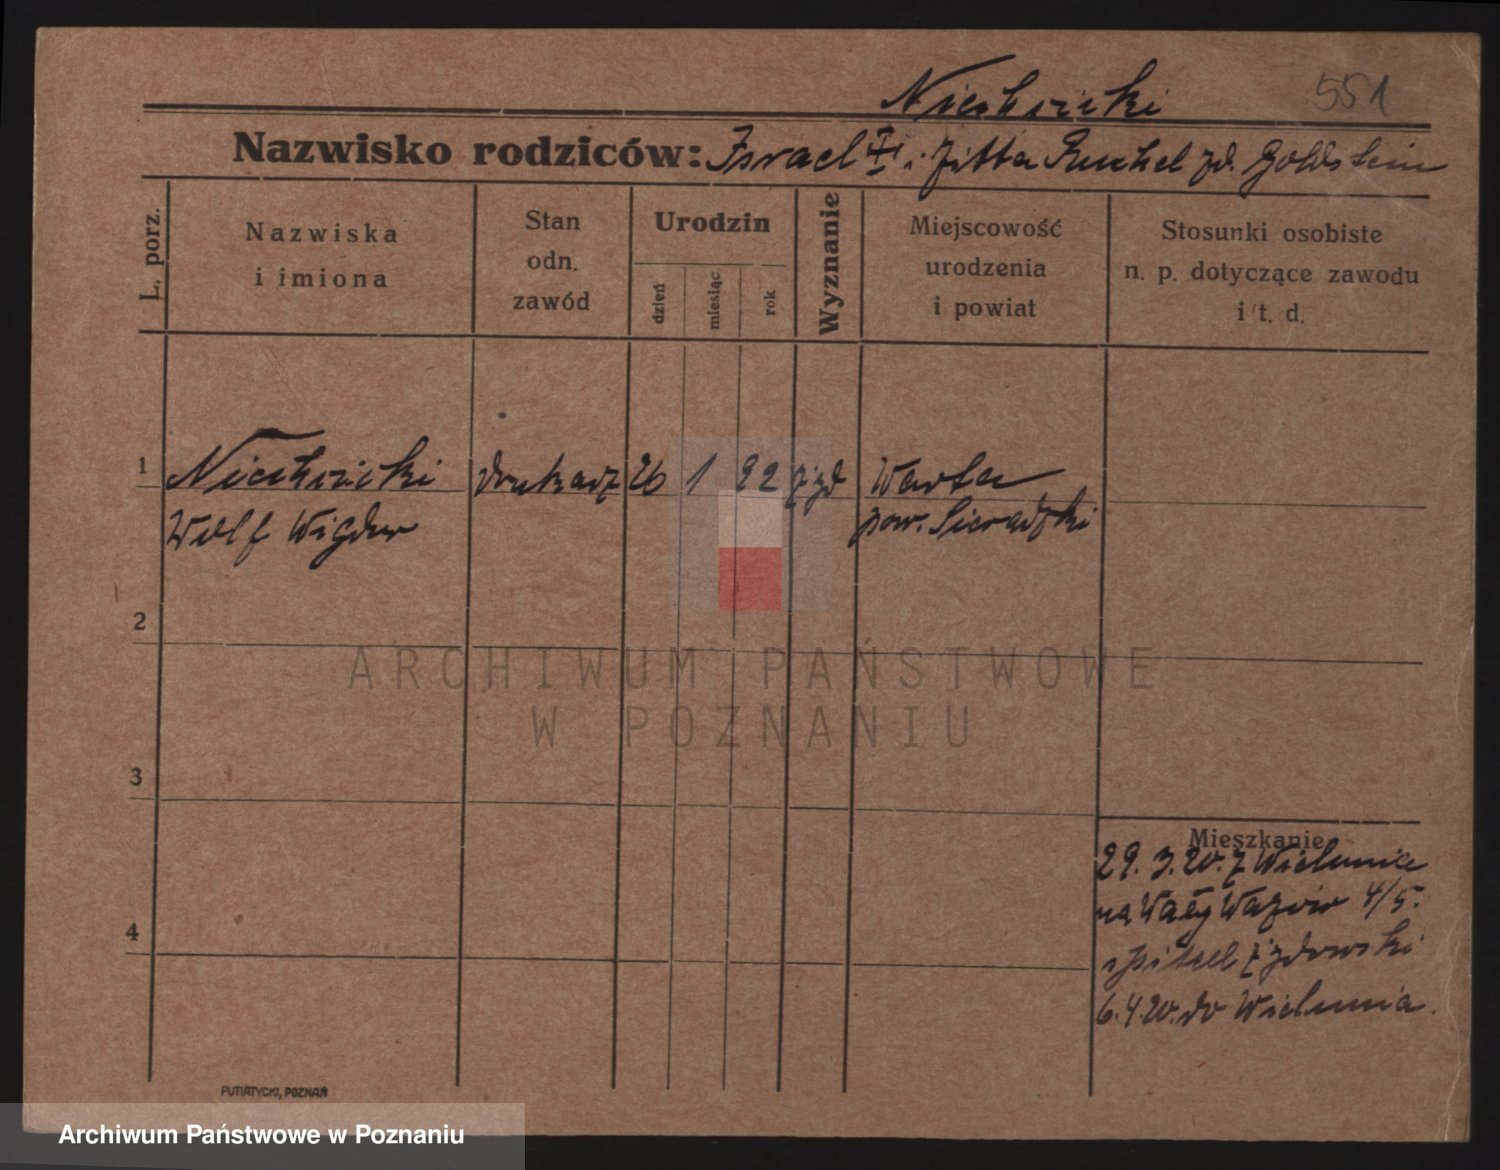 551
Nazwisko rodziców: Israel i Zitta Ruchel zd. Goldstein
L. porz.
Nazwiska i imiona
Stan odn. zawód
Urodzin
dzień
miesiąc
rok
Wyznanie
Miejscowość urodzenia i powiat
Stosunki osobiste n. p. dotyczące zawodu i t. d.
1
drukarz 26 1 22 żyd Warta
Wolf Wigdor
pow. Sieradzki
2
ARCHIWUM PAŃSTWOWE
W POZNANIU
3
Mieszkanie
29. 3. 20. z Wielunia
na Wały Wazów 4/5.
szpital żydowski
6. 4. 20. do Wielunia.
4
PUTIATYCKI, POZNAŃ
Archiwum Państwowe w Poznaniu